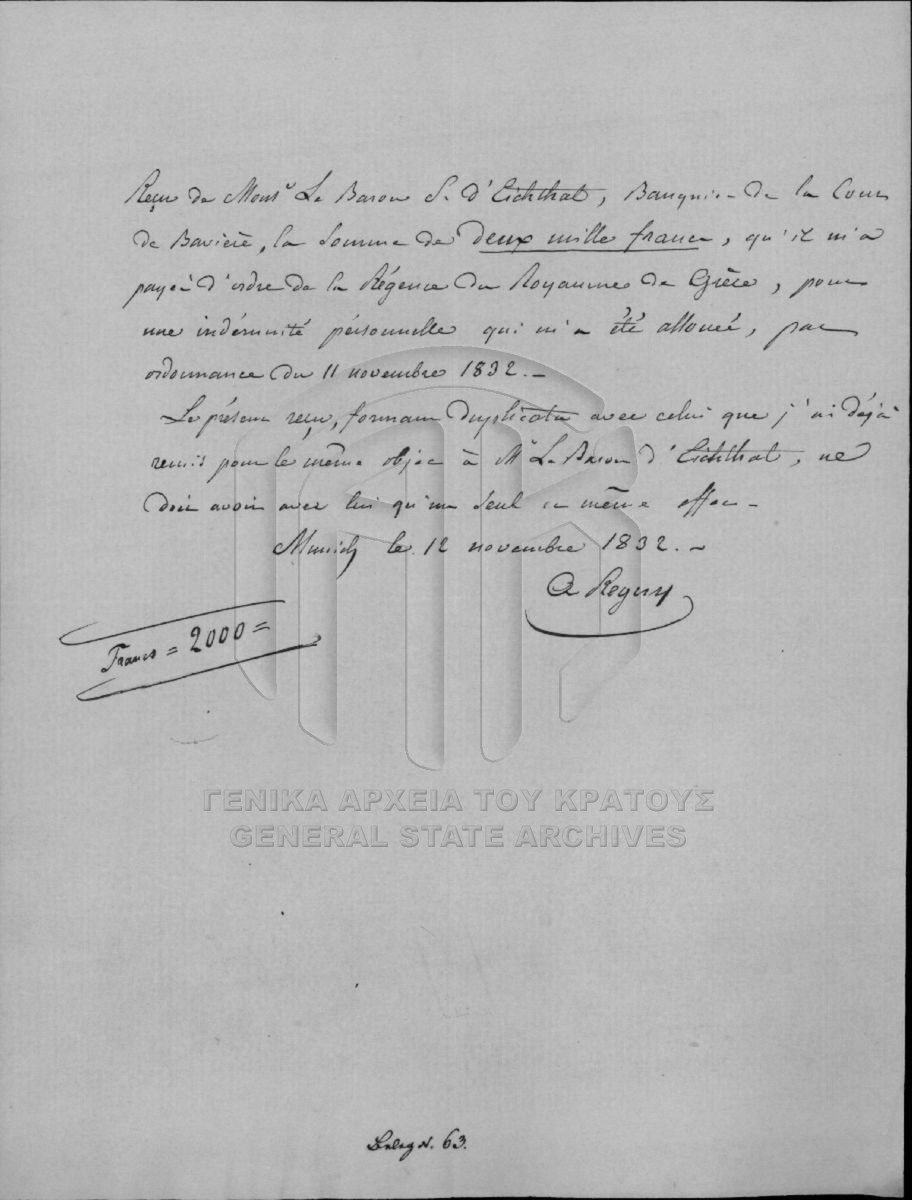 Reçu de Monsr Le Baron S. d'Eichthal, Banquier de la Cour
de Bavière, la Somme de deux mille francs, qu'il m'a
payée d'ordre de la Régence du Royaume de Grèce, pour
une indémnité pérsonnelle qui m'a été allouée, par
ordonnance du 11 novembre 1832. –
Le présent reçu, formant Duplicata avec celui que j'ai déjà
remis pour le même objet à Mr Le Baron d'Eichthal, ne
doit avoir avec lui qu'un Seul et même effet –
Munich le 12 novembre 1832. –
A Regny
Francs = 2000 =
ΓΕΝΙΚΑ ΑΡΧΕΙΑ ΤΟΥ ΚΡΑΤΟΥΣ
GENERAL STATE ARCHIVES
Beleg N. 63.